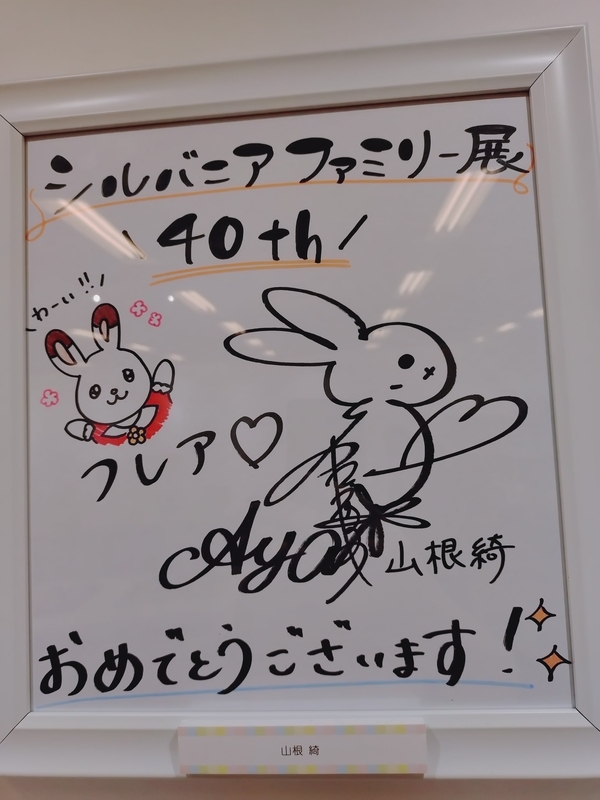 シルバニアファミリー展
40th
わーい!!
フレア♡
Aya
山根綺
おめでとうございます!
山根 綺